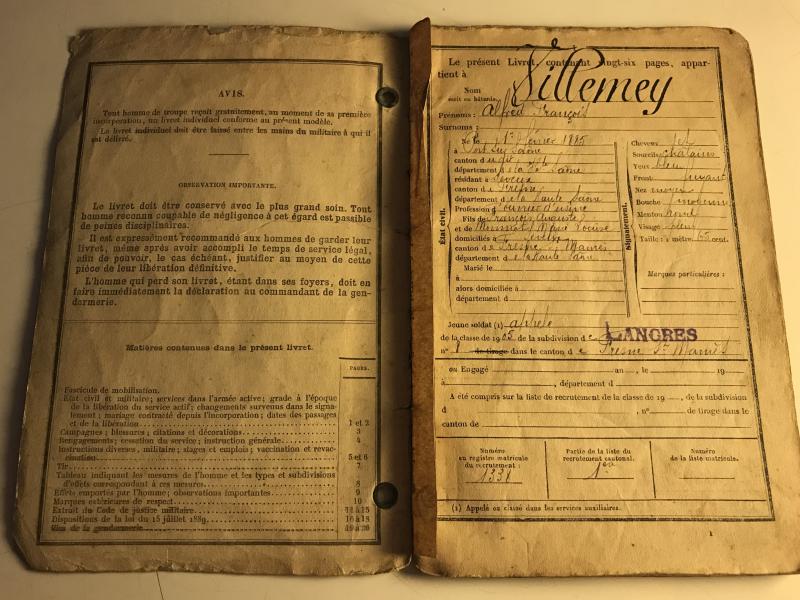 AVIS.
Tout homme de troupe reçoit gratuitement, au moment de sa première
incorporation, un livret individuel conforme au présent modèle.
Le livret individuel doit être laissé entre les mains du militaire à qui il
est délivré.
OBSERVATION IMPORTANTE.
Le livret doit être conservé avec le plus grand soin. Tout
homme reconnu coupable de négligence à cet égard est passible
de peines disciplinaires.
Il est expressément recommandé aux hommes de garder leur
livret, même après avoir accompli le temps de service légal,
afin de pouvoir, le cas échéant, justifier au moyen de cette
pièce de leur libération définitive.
L'homme qui perd son livret, étant dans ses foyers, doit en
faire immédiatement la déclaration au commandant de la gen-
darmerie.
Matières contenues dans le présent livret.
PAGES.
Fascicule de mobilisation.
État civil et militaire; services dans l'armée active; grade à l'époque
de la libération du service actif; changements survenus dans le signa-
lement; mariage contracté depuis l'incorporation; dates des passages
et de la libération 1 et 2
Campagnes; blessures; citations et décorations 3
Rengagements; cessation du service; instruction générale 4
Instructions diverses, militaire; stages et emplois; vaccination et revac-
cination 5 et 6
Tir 7
Tableau indiquant les mesures de l'homme et les types et subdivisions
d'effets correspondant à ces mesures 8
Effets emportés par l'homme; observations importantes 9
Marques extérieures de respect 10
Extrait du Code de justice militaire 11 à 15
Dispositions de la loi du 15 juillet 1889 16 à 18
de la gendarmerie
Le présent Livret, contenant vingt-six pages, appar-
tient à
Nom Villemey
écrit en bâtarde.
Prénoms : Alfred François
Surnoms :
État civil.
Né le 1er février 1885
à Port sur Saône
canton d
département de la Hte Saône
résidant à
canton de Fresne
département de la Haute Saône
Profession d ouvrier d'usine
Fils de François Auguste
et de Marie Louise
domiciliés à
canton de Fresne St Mamès
département de la Haute Saône
Marié le
à
alors domiciliée à
département d
Signalement.
Cheveux
Sourcils chatains
Yeux bleu
Front fuyant
Nez moyen
Bouche moyenne
Menton rond
Visage
Taille : 1 mètre 65 cent.
Marques particulières :
Jeune soldat (1) appelé
de la classe de 1905 de la subdivision de LANGRES
n° 8 de tirage dans le canton de Fresne St Mamès
ou Engagé an , le 19
à , département d
A été compris sur la liste de recrutement de la classe de 19 , de la subdivision
d , n° de tirage dans le
canton de
Numéro
au registre matricule
du recrutement :
1331
Partie de la liste du
recrutement cantonal.
1ère
Numéro
de la liste matricule.
(1) Appelé ou classé dans les services auxiliaires.
1